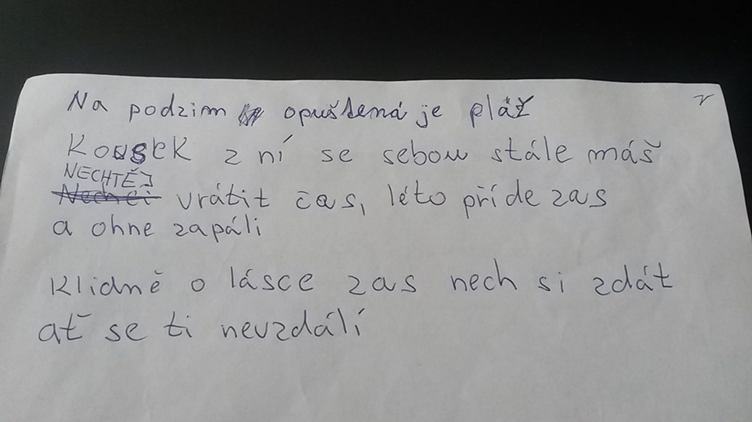 Na podzim opuštená je pláž
Kousek z ní se sebou stále máš
NECHTĚJ
vrátit čas, léto příde zas
a ohne zapáli
Klidně o lásce zas nech si zdát
ať se ti nevzdálí